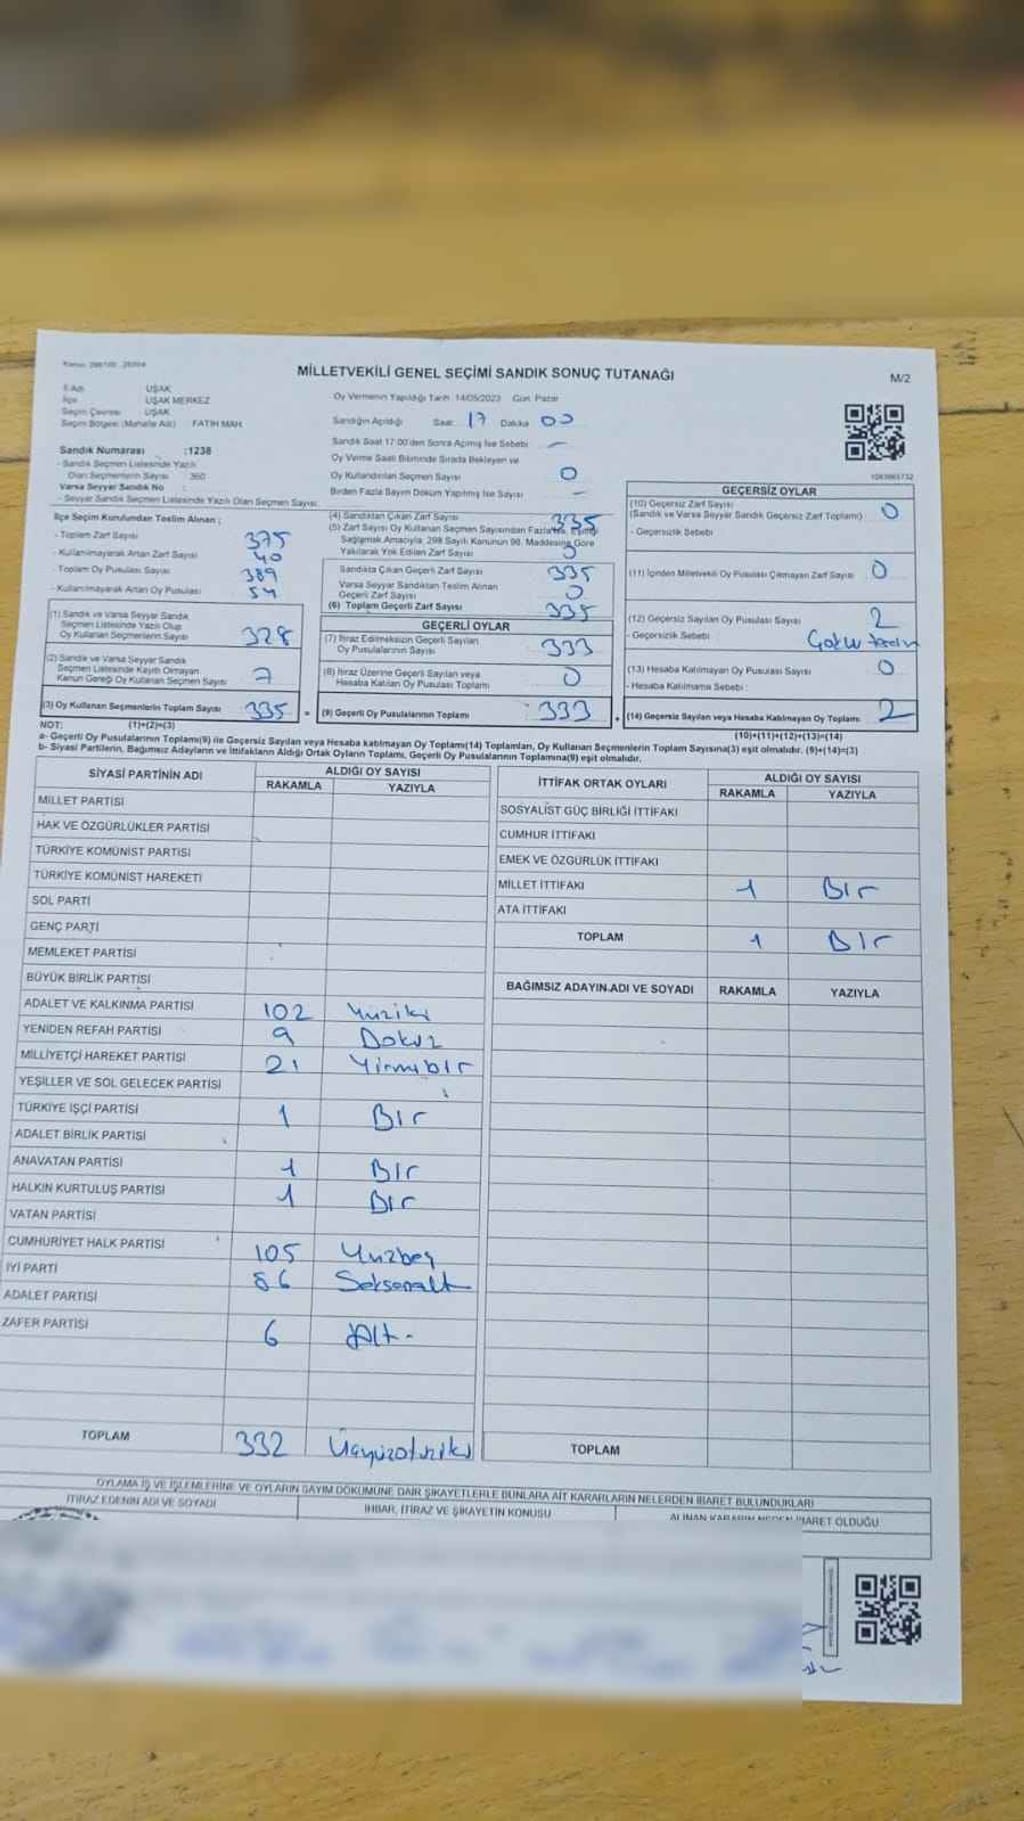 MİLLETVEKİLİ GENEL SEÇİMİ SANDIK SONUÇ TUTANAĞI
M/2
İl Adı UŞAK
İlçe UŞAK MERKEZ
Seçim Çevresi UŞAK
Seçim Bölgesi (Mahalle Adı) FATİH MAH
Sandık Numarası :1238
- Sandık Seçmen Listesinde Yazılı
Olan Seçmenlerin Sayısı 360
Varsa Seyyar Sandık No
- Seyyar Sandık Seçmen Listesinde Yazılı Olan Seçmen Sayısı:
Oy Vermenin Yapıldığı Tarih 14/05/2023 Gün Pazar
Sandığın Açıldığı Saat: 17 Dakika 00
Sandık Saat 17:00'den Sonra Açılmış İse Sebebi -
Oy Verme Saati Bitiminde Sırada Bekleyen ve
Oy Kullandırılan Seçmen Sayısı 0
Birden Fazla Sayım Döküm Yapılmış İse Sayısı -
İlçe Seçim Kurulundan Teslim Alınan ;
- Toplam Zarf Sayısı 375
- Kullanılmayarak Artan Zarf Sayısı 40
- Toplam Oy Pusulası Sayısı 389
- Kullanılmayarak Artan Oy Pusulası 54
(1) Sandık ve Varsa Seyyar Sandık
Seçmen Listesinde Yazılı Olup
Oy Kullanan Seçmenlerin Sayısı 328
(2) Sandık ve Varsa Seyyar Sandık
Seçmen Listesinde Kayıtlı Olmayan
Kanun Gereği Oy Kullanan Seçmen Sayısı 7
(3) Oy Kullanan Seçmenlerin Toplam Sayısı 335 =
(4) Sandıktan Çıkan Zarf Sayısı 335
(5) Zarf Sayısı Oy Kullanan Seçmen Sayısından Fazla İse, Eşitliği
Sağlamak Amacıyla, 298 Sayılı Kanunun 98. Maddesine Göre
Yakılarak Yok Edilen Zarf Sayısı 0
Sandıkta Çıkan Geçerli Zarf Sayısı 335
Varsa Seyyar Sandıktan Teslim Alınan
Geçerli Zarf Sayısı 0
(6) Toplam Geçerli Zarf Sayısı 335
GEÇERLİ OYLAR
(7) İtiraz Edilmeksizin Geçerli Sayılan
Oy Pusulalarının Sayısı 333
(8) İtiraz Üzerine Geçerli Sayılan veya
Hesaba Katılan Oy Pusulası Toplamı 0
(9) Geçerli Oy Pusulalarının Toplamı 333 +
GEÇERSİZ OYLAR
(10) Geçersiz Zarf Sayısı
(Sandık ve Varsa Seyyar Sandık Geçersiz Zarf Toplamı) 0
- Geçersizlik Sebebi
(11) İçinden Milletvekili Oy Pusulası Çıkmayan Zarf Sayısı 0
(12) Geçersiz Sayılan Oy Pusulası Sayısı 2
- Geçersizlik Sebebi:
(13) Hesaba Katılmayan Oy Pusulası Sayısı 0
- Hesaba Katılmama Sebebi :
(14) Geçersiz Sayılan veya Hesaba Katılmayan Oy Toplamı 2
NOT: (1)+(2)=(3) (10)+(11)+(12)+(13)=(14)
a- Geçerli Oy Pusulalarının Toplamı(9) ile Geçersiz Sayılan veya Hesaba katılmayan Oy Toplamı(14) Toplamları, Oy Kullanan Seçmenlerin Toplam Sayısına(3) eşit olmalıdır. (9)+(14)=(3)
b- Siyasi Partilerin, Bağımsız Adayların ve İttifakların Aldığı Ortak Oyların Toplamı, Geçerli Oy Pusulalarının Toplamına(9) eşit olmalıdır.
SİYASİ PARTİNİN ADI ALDIĞI OY SAYISI
RAKAMLA YAZIYLA
MİLLET PARTİSİ
HAK VE ÖZGÜRLÜKLER PARTİSİ
TÜRKİYE KOMÜNİST PARTİSİ
TÜRKİYE KOMÜNİST HAREKETİ
SOL PARTİ
GENÇ PARTİ
MEMLEKET PARTİSİ
BÜYÜK BİRLİK PARTİSİ
ADALET VE KALKINMA PARTİSİ 102 Yüziki
YENİDEN REFAH PARTİSİ 9 Dokuz
MİLLİYETÇİ HAREKET PARTİSİ 21 Yirmibir
YEŞİLLER VE SOL GELECEK PARTİSİ
TÜRKİYE İŞÇİ PARTİSİ 1 Bir
ADALET BİRLİK PARTİSİ
ANAVATAN PARTİSİ 1 Bir
HALKIN KURTULUŞ PARTİSİ 1 Bir
VATAN PARTİSİ
CUMHURİYET HALK PARTİSİ 105 Yüzbeş
İYİ PARTİ 86 Seksenaltı
ADALET PARTİSİ
ZAFER PARTİSİ 6 Altı
TOPLAM 332 Üçyüzotuziki
İTTİFAK ORTAK OYLARI ALDIĞI OY SAYISI
RAKAMLA YAZIYLA
SOSYALİST GÜÇ BİRLİĞİ İTTİFAKI
CUMHUR İTTİFAKI
EMEK VE ÖZGÜRLÜK İTTİFAKI
MİLLET İTTİFAKI 1 Bir
ATA İTTİFAKI
TOPLAM 1 Bir
BAĞIMSIZ ADAYIN ADI VE SOYADI RAKAMLA YAZIYLA
TOPLAM
OYLAMA İŞ VE İŞLEMLERİNE VE OYLARIN SAYIM DÖKÜMÜNE DAİR ŞİKAYETLERLE BUNLARA AİT KARARLARIN NELERDEN İBARET BULUNDUKLARI
İTİRAZ EDENİN ADI VE SOYADI
İHBAR, İTİRAZ VE ŞİKAYETİN KONUSU
ALINAN KARARIN NEDEN İBARET OLDUĞU